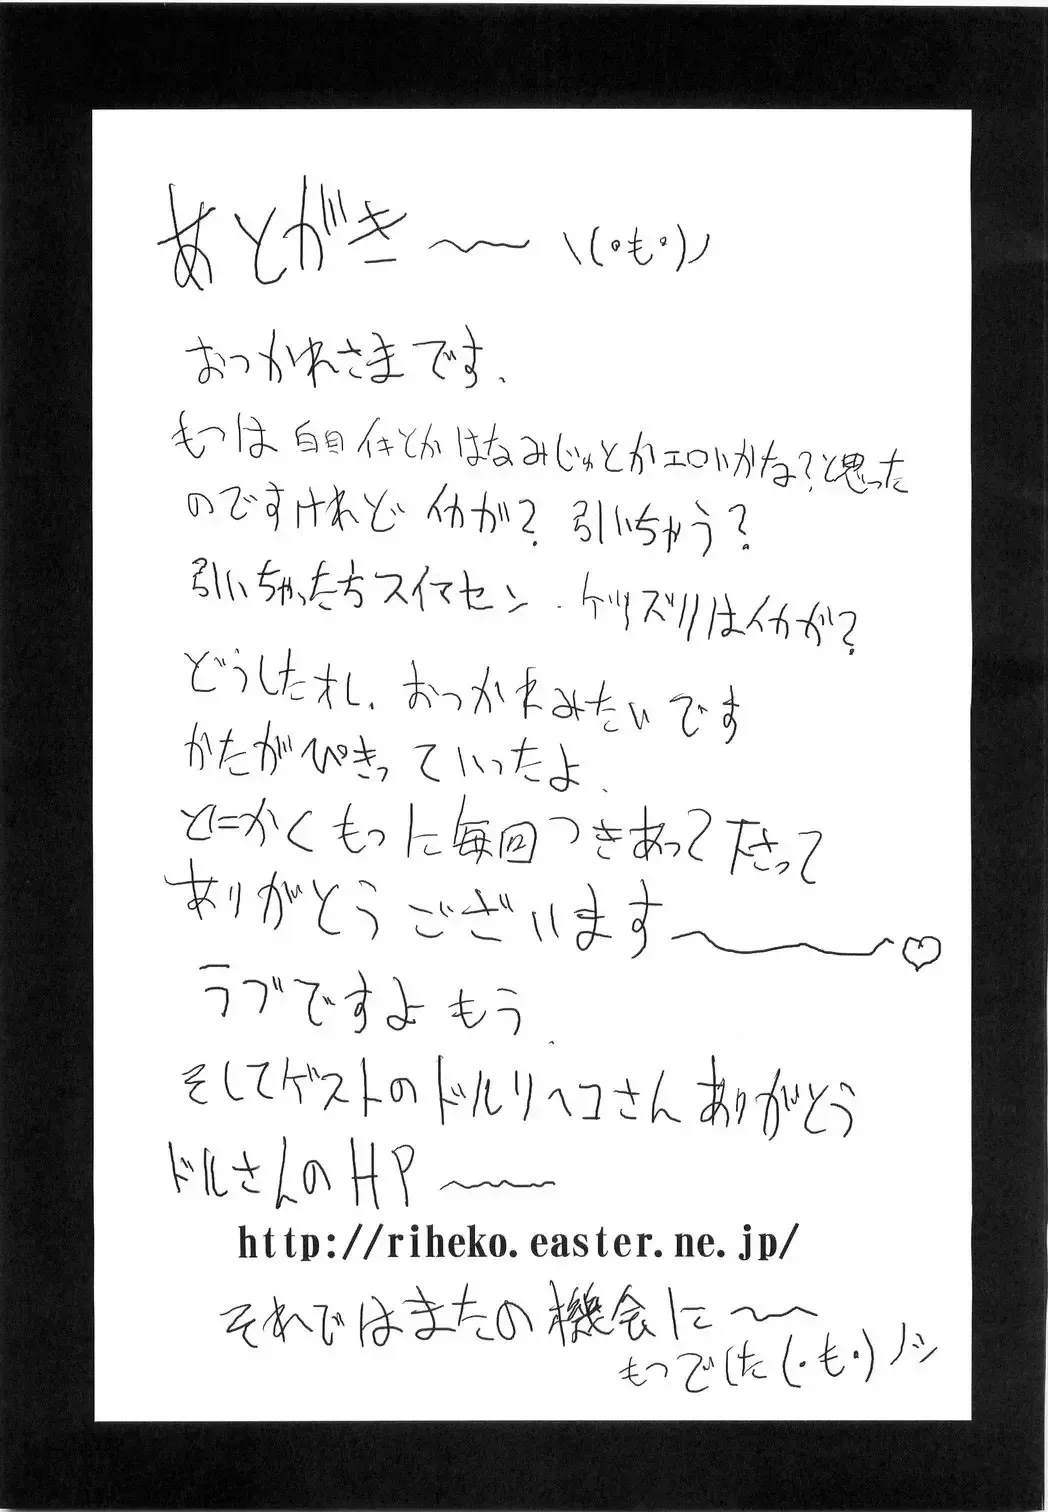 あとがき〜〜 \(・も・)ノ
おつかれさまです.
もつは白目イキとかはなみじゅとかエロいかな?と思った
のですけれど イカが? 引いちゃう?
引いちゃったらスイマセン. ケツズリはイカが?
どうしたオレ. おつかれみたいです
かたがぴきっていったよ.
とにかくもつに毎回つきあって下さって
ありがとうございます〜〜♡
ラブですよもう.
そしてゲストのドルリヘコさんありがとう
ドルさんのHP〜〜
http://riheko.easter.ne.jp/
それではまたの機会に〜〜
もつでした(・も・)ノシ